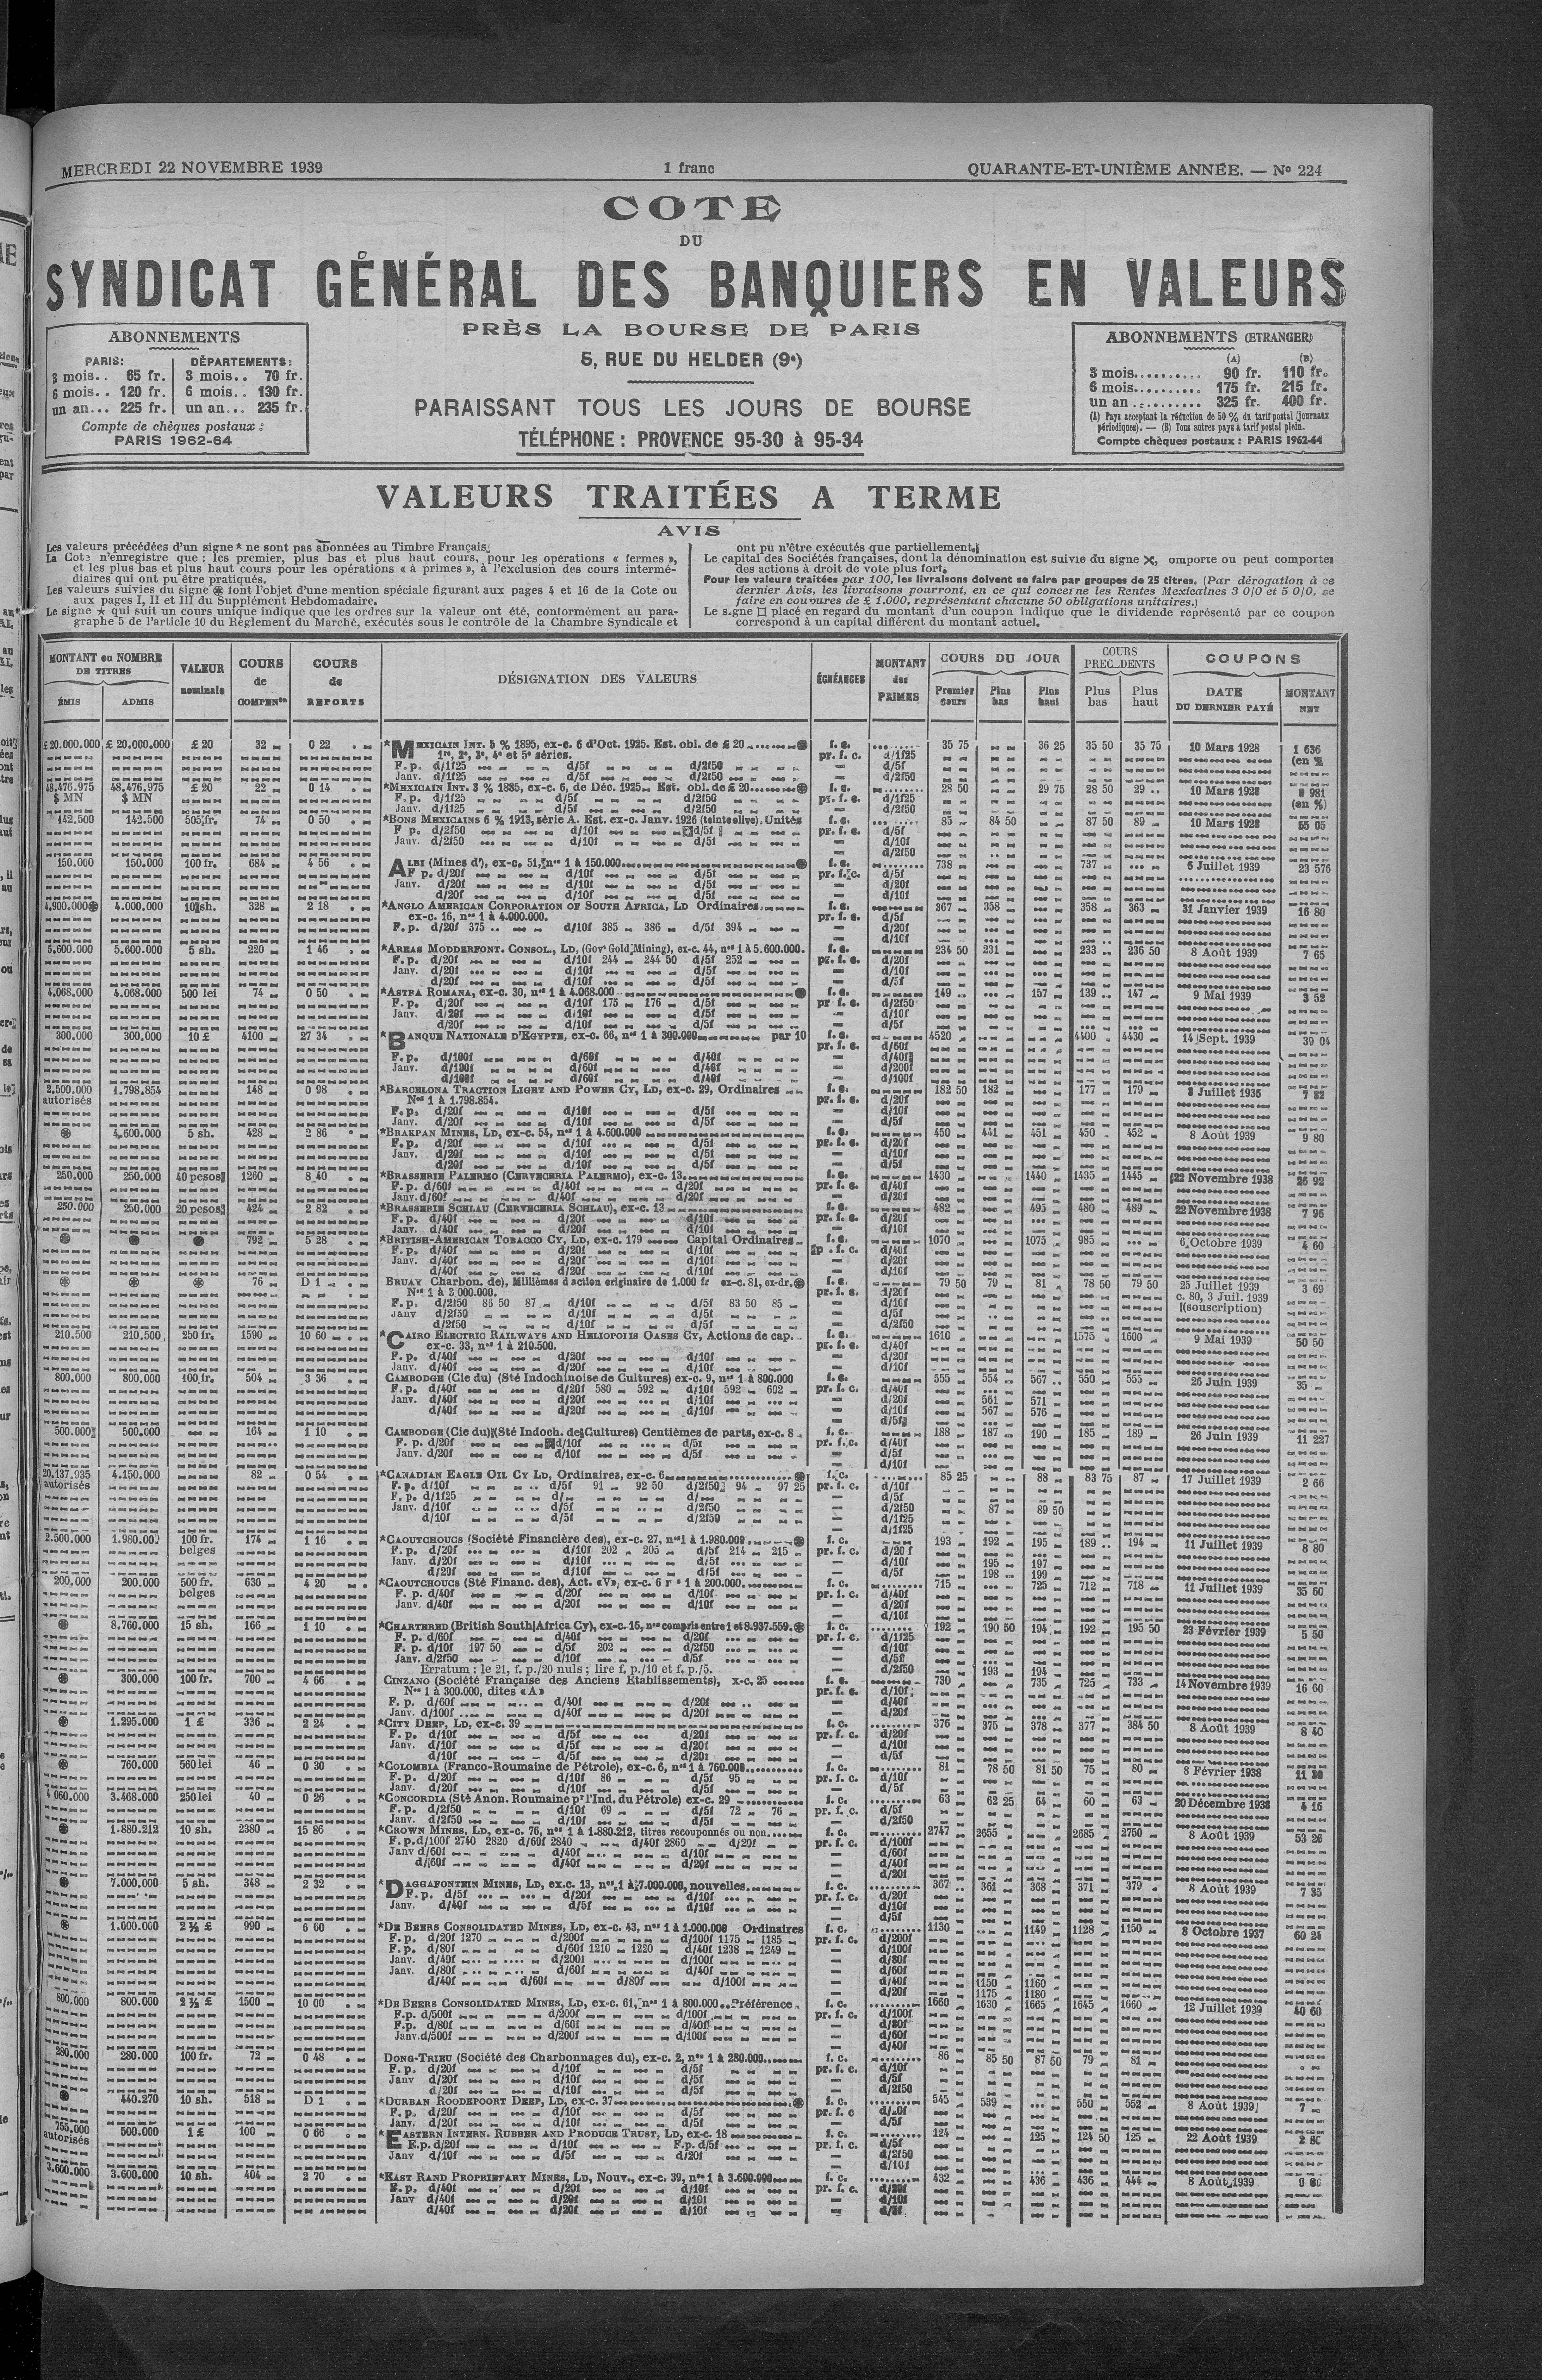 MERCREDI 22 NOVEMBRE 1939
1 franc
QUARANTE-ET-UNIÈME ANNÉE. — Nº 224
COTE
DU
SYNDICAT GÉNÉRAL DES BANQUIERS EN VALEURS
PRÈS LA BOURSE DE PARIS
5, RUE DU HELDER (9e)
PARAISSANT TOUS LES JOURS DE BOURSE
TÉLÉPHONE : PROVENCE 95-30 à 95-34
ABONNEMENTS
PARIS: DÉPARTEMENTS:
3 mois.. 65 fr. 3 mois.. 70 fr.
6 mois.. 120 fr. 6 mois.. 130 fr.
un an... 225 fr. un an... 235 fr.
Compte de chèques postaux :
PARIS 1962-64
ABONNEMENTS (ETRANGER)
(A) (B)
3 mois.......... 90 fr. 110 fr.
6 mois.......... 175 fr. 215 fr.
un an.......... 325 fr. 400 fr.
(A) Pays acceptant la réduction de 50 % du tarif postal (journaux
périodiques). — (B) Tous autres pays à tarif postal plein.
Compte chèques postaux : PARIS 1962-64
VALEURS TRAITÉES A TERME
AVIS
Les valeurs précédées d'un signe * ne sont pas abonnées au Timbre Français.
La Cote n'enregistre que : les premier, plus bas et plus haut cours, pour les opérations « fermes »,
et les plus bas et plus haut cours pour les opérations « à primes », à l'exclusion des cours intermé-
diaires qui ont pu être pratiqués.
Les valeurs suivies du signe ⊛ font l'objet d'une mention spéciale figurant aux pages 4 et 16 de la Cote ou
aux pages I, II et III du Supplément Hebdomadaire.
Le signe ★ qui suit un cours unique indique que les ordres sur la valeur ont été, conformément au para-
graphe 5 de l'article 10 du Règlement du Marché, exécutés sous le contrôle de la Chambre Syndicale et
ont pu n'être exécutés que partiellement.
Le capital des Sociétés françaises, dont la dénomination est suivie du signe ✕, omporte ou peut comporter
des actions à droit de vote plus fort.
Pour les valeurs traitées par 100, les livraisons doivent se faire par groupes de 25 titres. (Par dérogation à ce
dernier Avis, les livraisons pourront, en ce qui concerne les Rentes Mexicaines 3 0|0 et 5 0|0, se
faire en coupures de £ 1.000, représentant chacune 50 obligations unitaires.)
Le signe □ placé en regard du montant d'un coupon indique que le dividende représenté par ce coupon
correspond à un capital différent du montant actuel.
MONTANT ou NOMBRE DE TITRES
ÉMIS ADMIS
VALEUR nominale
COURS de COMPENon
COURS de REPORTS
DÉSIGNATION DES VALEURS
ÉCHÉANCES
MONTANT des PRIMES
COURS DU JOUR
Premier cours Plus bas Plus haut
COURS PREC_DENTS
Plus bas Plus haut
COUPONS
DATE DU DERNIER PAYÉ
MONTANT NET
£ 20.000.000 £ 20.000.000 £ 20 32 0 22 *MEXICAIN INT. 5 % 1895, ex-c. 6 d'Oct. 1925. Est. obl. de £ 20 f. c. 35 75 36 25 35 50 35 75 10 Mars 1928 1 636
1re, 2e, 3e, 4e et 5e séries. pr. f. c. d/1f25 (en %
F. p. d/1f25 d/5f d/2f50 d/5f
Janv. d/1f25 d/5f d/2f50 d/2f50
48.476.975 48.476.975 £ 20 22 0 14 *MEXICAIN INT. 3 % 1885, ex-c. 6, de Déc. 1925 Est. obl. de £ 20 f. c. 28 50 29 75 28 50 29 .. 10 Mars 1928 0 981
$ MN $ MN F. p. d/1f25 d/5f d/2f50 pr. f. c. d/1f25 (en %)
Janv. d/1f25 d/5f d/2f50 d/2f50
142.500 142.500 505 fr. 74 0 50 *BONS MEXICAINS 6 % 1913, série A. Est. ex-c. Janv. 1926 (teinte olive). Unités f. c. 85 84 50 87 50 89 10 Mars 1928 55 05
F p. d/2f50 d/10f d/5f pr. f. c. d/5f
Janv. d/2f50 d/10f d/5f d/10f
d/2f50
150.000 150.000 100 fr. 684 4 56 ALBI (Mines d'), ex-c. 51, nos 1 à 150.000 f. c. 738 737 6 Juillet 1939 23 576
F p. d/20f d/10f d/5f pr. f. c. d/5f
Janv. d/20f d/10f d/5f d/20f
d/20f d/10f d/5f d/10f
4.900.000⊛ 4.000.000 10 sh. 328 2 18 *ANGLO AMERICAN CORPORATION OF SOUTH AFRICA, LD Ordinaires f. c. 367 358 358 363 31 Janvier 1939 16 80
ex-c. 16, nos 1 à 4.000.000. pr. f. c. d/5f
F. p. d/20f 375 .. d/10f 385 386 d/5f 394 d/20f
d/10f
5.600.000 5.600.000 5 sh. 220 1 46 *AREAS MODDERFONT. CONSOL., LD, (Govt Gold Mining), ex-c. 44, nos 1 à 5.600.000. f. c. 234 50 231 233 .. 236 50 8 Août 1939 7 65
F. p. d/20f d/10f 244 244 50 d/5f 252 pr. f. c. d/20f
Janv. d/20f d/10f d/5f d/10f
d/20f d/10f d/5f d/5f
4.068.000 4.068.000 500 lei 74 0 50 *ASTRA ROMANA, ex-c. 30, nos 1 à 4.068.000 f. c. 149 157 139 147 9 Mai 1939 3 52
F. p. d/20f d/10f 175 176 d/5f pr f. c. d/2f50
Janv. d/20f d/10f d/5f d/10f
d/20f d/10f d/5f d/5f
300.000 300.000 10 £ 4100 27 34 *BANQUE NATIONALE D'EGYPTE, ex-c. 66, nos 1 à 300.000 par 10 f. c. 4520 4400 4430 14 Sept. 1939 39 04
pr. f. c. d/60f
F. p. d/100f d/60f d/40f d/40f
Janv. d/100f d/60f d/40f d/200f
d/100f d/60f d/40f d/100f
2.500.000 1.798.854 148 0 98 *BARCELONA TRACTION LIGHT AND POWER CY, LD, ex-c. 29, Ordinaires f. c. 182 50 182 177 179 8 Juillet 1936 7 82
autorisés Nos 1 à 1.798.854. pr. f. c. d/20f
F. p. d/20f d/10f d/5f d/10f
Janv. d/20f d/10f d/5f d/5f
⊛ 4.600.000 5 sh. 428 2 86 *BRAKPAN MINES, LD, ex-c. 54, nos 1 à 4.600.000 f. c. 450 441 451 450 452 8 Août 1939 9 80
F. p. d/20f d/10f d/5f pr. f. c. d/20f
Janv. d/20f d/10f d/5f d/10f
d/20f d/10f d/5f d/5f
250.000 250.000 40 pesos 1260 8 40 *BRASSERIE PALERMO (CERVECERIA PALERMO), ex-c. 13 f. c. 1430 1440 1435 1445 22 Novembre 1938 26 92
F. p. d/60f d/40f d/20f pr. f. c. d/40f
Janv. d/60f d/40f d/20f d/20f
250.000 250.000 20 pesos 424 2 82 *BRASSERIE SCHLAU (CERVECERIA SCHLAU), ex-c. 13 f. c. 482 495 480 489 22 Novembre 1938 7 96
F. p. d/40f d/20f d/10f pr. f. c. d/20f
Janv. d/40f d/20f d/10f d/10f
⊛ ⊛ ⊛ 792 5 28 *BRITISH-AMERICAN TOBACCO CY, LD, ex-c. 179 Capital Ordinaires f. c. 1070 1075 985 6 Octobre 1939 4 60
F. p. d/40f d/20f d/10f p . f. c. d/40f
Janv. d/40f d/20f d/10f d/20f
d/40f d/20f d/10f d/10f
⊛ ⊛ ⊛ 76 D 1 BRUAY Charbon. de), Millièmes d action originaire de 1.000 fr ex-c. 81, ex-dr.⊛ f. c. 79 50 79 81 78 50 79 50 25 Juillet 1939 3 69
Nos 1 à 3.000.000. pr. f. c. d/20f c. 80, 3 Juil. 1939
F. p. d/2f50 86 50 87 d/10f d/5f 83 50 85 d/10f (souscription)
Janv d/2f50 d/10f d/5f d/5f
d/2f50 d/10f d/5f d/2f50
210.500 210.500 250 fr. 1590 10 60 *CAIRO ELECTRIC RAILWAYS AND HELIOPOLIS OASES CY, Actions de cap. f. c. 1610 1575 1600 9 Mai 1939 50 50
ex-c. 33, nos 1 à 210.500. pr. f. c. d/40f
F. p. d/40f d/20f d/10f d/20f
Janv. d/40f d/20f d/10f d/10f
800.000 800.000 100 fr. 504 3 36 CAMBODGE (Cie du) (Sté Indochinoise de Cultures) ex-c. 9, nos 1 à 800.000 f. c. 555 554 567 550 555 26 Juin 1939 35
F. p. d/40f d/20f 580 592 d/10f 592 602 pr. f. c. d/40f
Janv. d/40f d/20f d/10f d/20f 561 571
d/40f d/20f d/10f d/10f 567 576
d/5f
500.000 500.000 164 1 10 CAMBODGE (Cie du) (Sté Indoch. de Cultures) Centièmes de parts, ex-c. 8 f. c. 188 187 190 185 189 26 Juin 1939 11 227
F. p. d/20f d/10f d/5f pr. f. c. d/40f
Janv. d/20f d/10f d/5f d/5f
d/10f
20.137.935 4.150.000 82 0 54 *CANADIAN EAGLE OIL CY LD, Ordinaires, ex-c. 6 f. c. 85 25 88 83 75 87 17 Juillet 1939 2 66
autorisés F. p. d/10f d/5f 91 92 50 d/2f50 94 97 25 pr. f. c. d/10f
F. p. d/1f25 d/ d/ d/5f
Janv. d/10f d/5f d/2f50 d/2f50 87 89 50
d/10f d/5f d/2f50 d/1f25
d/1f25
2.500.000 1.980.000 100 fr. 174 1 16 *CAOUTCHOUCS (Société Financière des), ex-c. 27, nos 1 à 1.980.000 f. c. 193 192 195 189 .. 194 11 Juillet 1939 8 80
belges F. p. d/20f d/10f 202 205 d/5f 214 215 pr. f. c. d/20 f
Janv. d/20f d/10f d/5f d/10f 195 197
d/20f d/10f d/5f d/5f 198 199
200.000 200.000 500 fr. 630 4 20 *CAOUTCHOUCS (Sté Financ. des), Act. «V», ex-c. 6 1 à 200.000 f. c. 715 725 712 718 11 Juillet 1939 35 60
belges F. p. d/40f d/20f d/10f pr. f. c. d/40f
Janv. d/40f d/20f d/10f d/20f
d/10f
⊛ 8.760.000 15 sh. 166 1 10 *CHARTERED (British South Africa Cy), ex-c. 16, nos compris entre 1 et 8.937.559.⊛ f. c. 192 190 50 194 192 195 50 23 Février 1939 5 50
F. p. d/60f d/40f d/20f pr. f. c. d/1f25
F. p. d/10f 197 50 d/5f 202 d/2f50 d/10f
Janv. d/2f50 d/10f d/5f d/5f
Erratum : le 21, f. p./20 nuls ; lire f. p./10 et f. p./5. d/2f50 193 194
⊛ 300.000 100 fr. 700 4 66 CINZANO (Société Française des Anciens Etablissements), x-c. 25 f. c. 730 735 725 733 14 Novembre 1939 16 60
Nos 1 à 300.000, dites «A» pr. f. c. d/10f
F. p. d/60f d/40f d/20f d/40f
Janv. d/100f d/40f d/20f d/20f
⊛ 1.295.000 1 £ 336 2 24 *CITY DEEP, LD, ex-c. 39 f. c. 376 375 378 377 384 50 8 Août 1939 8 40
F. p. d/10f d/5f d/20f pr. f. c. d/20f
Janv. d/10f d/5f d/20f d/10f
d/10f d/5f d/20f d/5f
⊛ 760.000 560 lei 46 0 30 *COLOMBIA (Franco-Roumaine de Pétrole), ex-c. 6, nos 1 à 760.000 f. c. 81 78 50 81 50 75 80 8 Février 1938 11 30
F. p. d/20f d/10f 86 d/5f 95 pr. f. c. d/10f
Janv. d/20f d/10f d/5f d/5f
4 060.000 3.468.000 250 lei 40 0 26 *CONCORDIA (Sté Anon. Roumaine pr l'Ind. du Pétrole) ex-c. 29 f. c. 63 62 25 64 60 63 20 Décembre 1938 4 16
F. p. d/2f50 d/10f 69 d/5f 72 76 pr. f. c. d/5f
Janv. d/2f50 d/10f d/5f d/2f50
⊛ 1.880.212 10 sh. 2380 15 86 *CROWN MINES, LD, ex-c. 76, nos 1 à 1.880.212, titres recouponnés ou non f. c. 2747 2655 2685 2750 8 Août 1939 53 26
F. p. d/100f 2740 2820 d/60f 2840 d/40f 2860 d/20f pr. f. c. d/100f
Janv d/60f d/40f d/10f d/60f
d/60f d/40f d/20f d/40f
d/20f
⊛ 7.000.000 5 sh. 348 2 32 *DAGGAFONTEIN MINES, LD, ex.c. 13, nos 1 à 7.000.000, nouvelles f. c. 367 361 368 371 379 8 Août 1939 7 35
F. p. d/5f d/20f d/10f pr. f. c. d/20f
Janv. d/40f d/5f d/10f d/10f
d/5f
⊛ 1.000.000 2 ½ £ 990 6 60 *DE BEERS CONSOLIDATED MINES, LD, ex-c. 43, nos 1 à 1.000.000 Ordinaires f. c. 1130 1149 1128 1150 8 Octobre 1937 60 24
F. p. d/20f 1270 d/200f d/100f 1175 1185 pr. f. c. d/200f
F. p. d/80f d/60f 1210 1220 d/40f 1238 1249 d/100f
Janv. d/40f d/200f d/100f d/80f
Janv. d/80f d/60f d/40f d/60f
d/40f d/60f d/80f d/100f d/40f 1150 1160
d/20f 1175 1180
800.000 800.000 2 ½ £ 1500 10 00 *DE BEERS CONSOLIDATED MINES, LD, ex-c. 61, nos 1 à 800.000 Préférence f. c. 1660 1630 1665 1645 1660 12 Juillet 1939 40 60
F. p. d/500f d/200f d/100f pr. f. c. d/100f
F.p. d/80f d/60f d/40f d/80f
Janv. d/500f d/200f d/100f d/60f
d/40f
280.000 280.000 100 fr. 72 0 48 DONG-TRIEU (Société des Charbonnages du), ex-c. 2, nos 1 à 280.000 f. c. 86 85 50 87 50 79 81
F. p. d/20f d/10f d/5f pr. f. c. d/10f
Janv d/20f d/10f d/5f d/5f
d/20f d/10f d/5f d/2f50
⊛ 440.270 10 sh. 518 D 1 *DURBAN ROODEPOORT DEEP, LD, ex-c. 37 f. c. 545 539 550 552 8 Août 1939 7
F. p. d/20f d/10f d/5f pr. f. c
Janv. d/20f d/10f d/5f d/5f
755.000 500.000 1 £ 100 0 66 *EASTERN INTERN. RUBBER AND PRODUCE TRUST, LD, ex-c. 18 f. c. 124 125 124 50 125 22 Août 1939
autorisés F.p. d/20f d/10f F.p. d/5f pr. f. c. d/5f
Janv d/10f d/5f d/20f d/2f50
d/10f
3.600.000 3.600.000 10 sh. 404 2 70 *EAST RAND PROPRIETARY MINES, LD, Nouv., ex-c. 39, nos 1 à 3.600.000 f. c. 432 436 436 444 8 Août 1939
F. p. d/40f d/20f d/10f pr. f. c. d/20f
Janv d/40f d/20f d/10f d/10f
d/40f d/20f d/10f d/5f